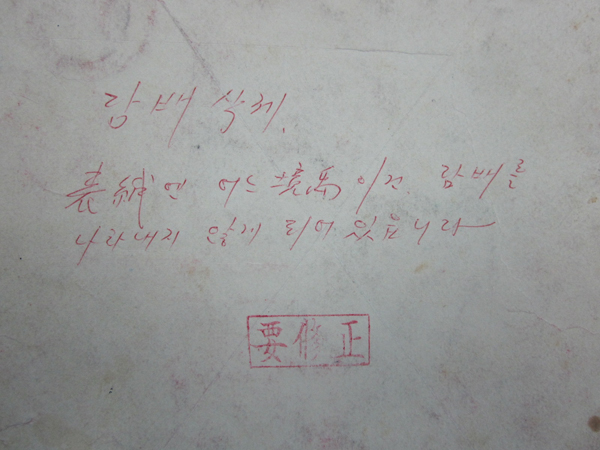 담배 삭제.
表紙엔 어느 境遇이건 담배를
나타내지 않게 되어 있읍니다
要修正